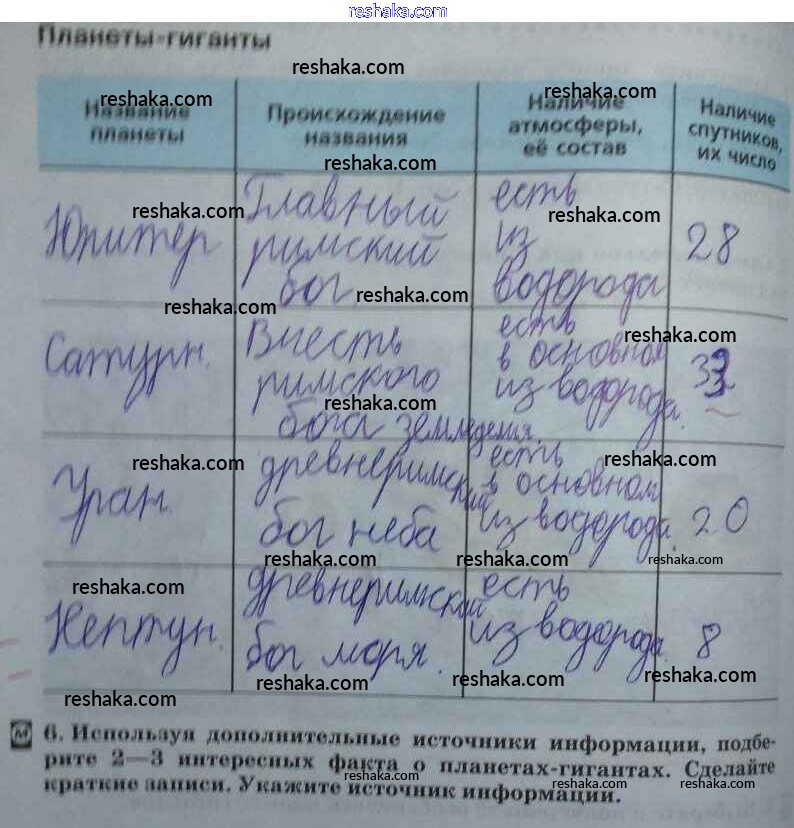 reshaka.com
Планеты-гиганты
reshaka.com
Название планеты
reshaka.com
Происхождение названия
reshaka.com
Наличие атмосферы, её состав
reshaka.com
Наличие спутников, их число
Юпитер
reshaka.com
Главный
римский
бог
reshaka.com
есть
из
водорода
reshaka.com
28
reshaka.com
Сатурн.
В честь
римского
бога земледелия.
reshaka.com
есть
в основном
из водорода.
reshaka.com
reshaka.com
Уран.
reshaka.com
древнеримский
бог неба
reshaka.com
есть
в основном
из водорода.
reshaka.com
20
reshaka.com
reshaka.com
Нептун.
reshaka.com
древнеримский
бог моря.
reshaka.com
есть
из водорода.
reshaka.com
8
reshaka.com
reshaka.com
reshaka.com
6. Используя дополнительные источники информации, подбе-
рите 2—3 интересных факта о планетах-гигантах. Сделайте
краткие записи. Укажите источник информации.
reshaka.com
reshaka.com